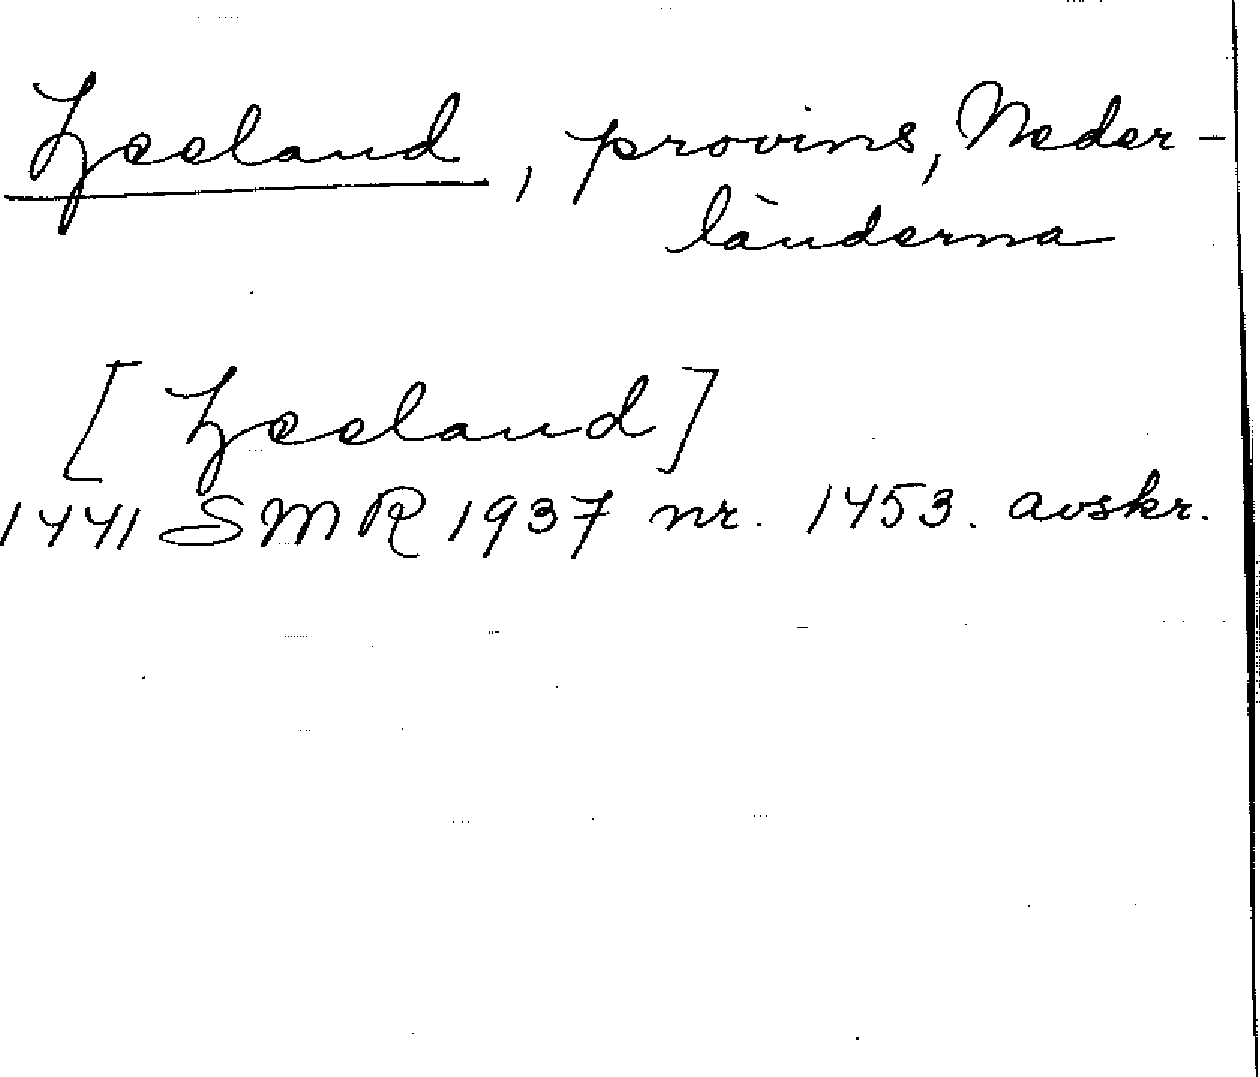 Zeeland, provins, Neder-
länderna
[Zeeland]
1441 SMR 1937 nr. 1453. avskr.